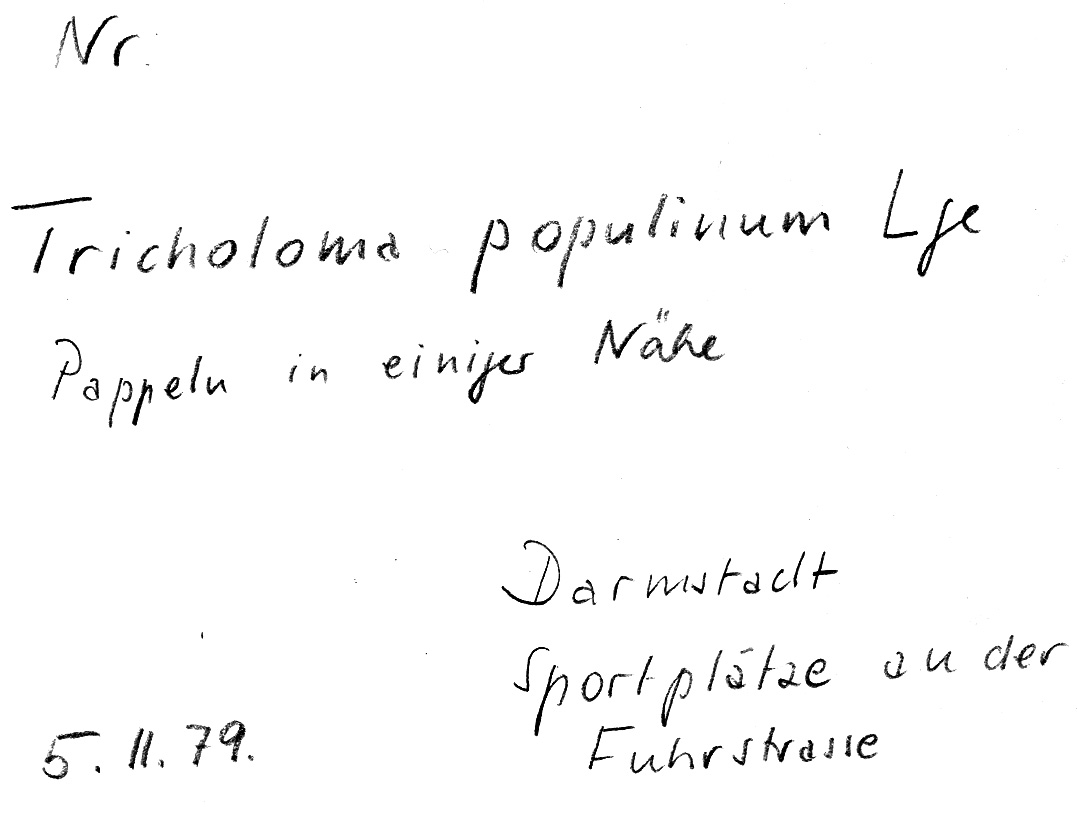 Nr.
Tricholoma populinum Lge
Pappeln in einiger Nähe
Darmstadt
Sportplätze an der
Fuhrstrasse
5.11.79.